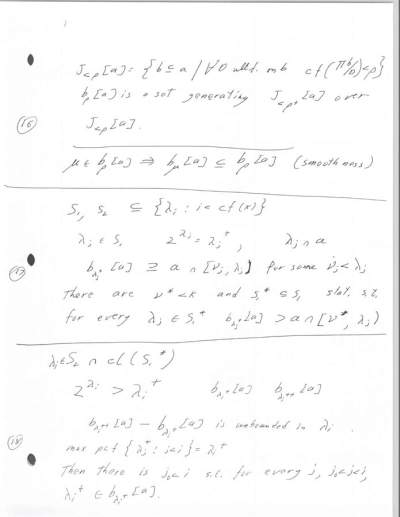 J_{<ρ}[a] = {b ⊆ a / ∀D ult. on b cf(πb/D)<ρ}
b_ρ[a] is a set generating J_{<ρ^+}[a] over
(16) J_{<ρ}[a].
μ ∈ b_ρ[a] ⇒ b_μ[a] ⊆ b_ρ[a] (smoothness)
S_1, S_2 ⊆ {λ_i : i < cf(κ)}
λ_i ∈ S_1 2^{λ_i} = λ_i^+, λ_i ∩ a
(17) b_{λ_i^+}[a] ⊇ a ∩ [ν_i, λ_i) for some ν_i < λ_i
There are ν* < κ and S_1* ⊆ S_1 stat. s.t.
for every λ_i ∈ S_1* b_{λ_i^+}[a] ⊃ a ∩ [ν*, λ_i)
λ_i ∈ S_2 ∩ cl(S_1*)
2^{λ_i} > λ_i^+ b_{λ_i^+}[a] b_{λ_i^{++}}[a]
(18) b_{λ_i^{++}}[a] − b_{λ_i^+}[a] is unbounded in λ_i.
max pcf {λ_j^+ : j<i} = λ_i^+
Then there is j_0<i s.t. for every j, j_0<j<i,
λ_j^+ ∈ b_{λ_i^+}[a].